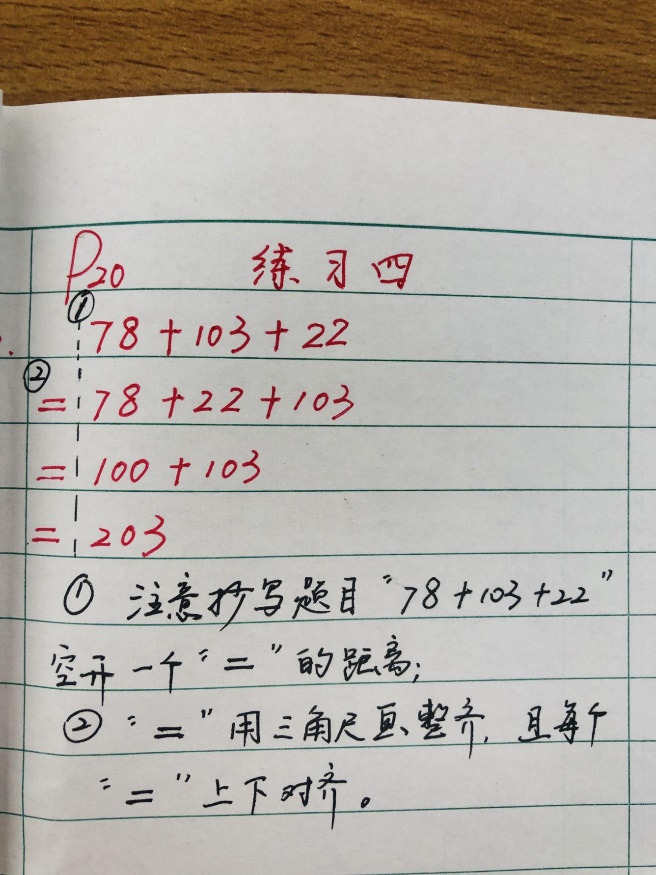 P20 练习四
① 78+103+22
② = 78+22+103
= 100+103
= 203
① 注意抄写题目“78+103+22”
空开一个“=”的距离；
② “=”用三角尺画整齐，且每个
“=”上下对齐。